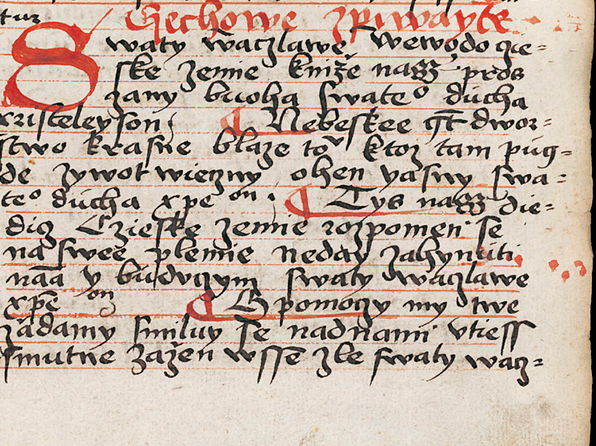 tur Czechowe zpiwayte
Swaty waczlawe, Wewodo cze=
ske zemie knize nass pros
zany buoha swateo ducha
xristeleyson; Nebeskee gt dwor=
stwo krasne blaze tov ktoz tam pug=
de zywot wieczny ohen yasny swa=
teo ducha xpe on; Tys nass die=
dicz Czieske zemie rozpomen se
na swee plemie neday zahynuti
nam y buducym swaty waczlawe
xpe on Gpomoczy my twe
zadamy smiluy se nad nami vtiess
smutne zazen wsse zle swaty wacz=